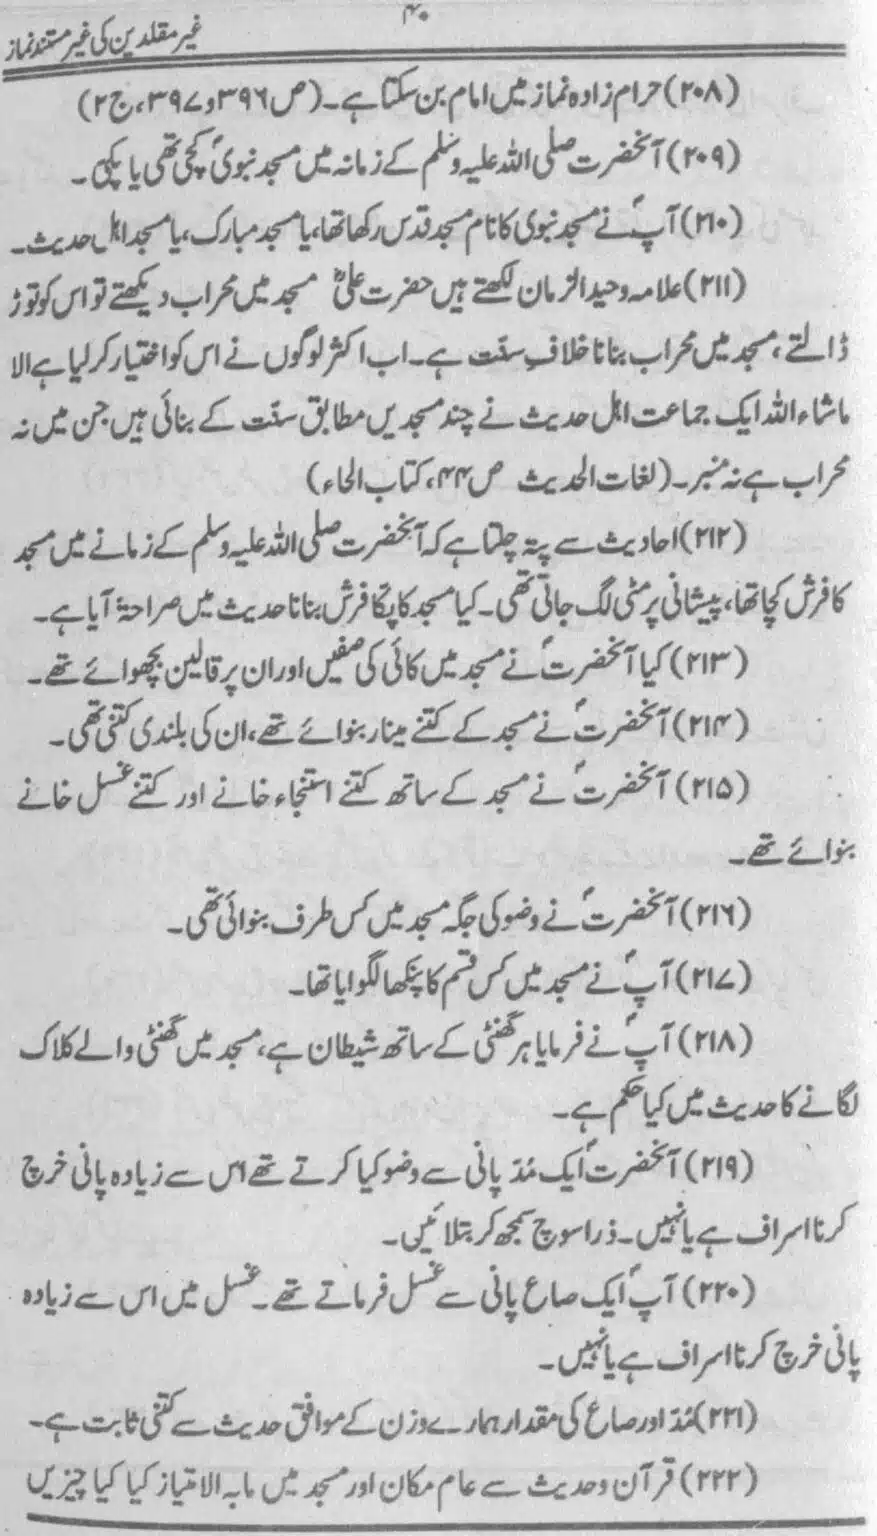 ۴۰
غیر مقلدین کی غیر مستند نماز
(۲۰۸) حرام زادہ نماز میں امام بن سکتا ہے۔ (ص ۳۹۶ و ۳۹۷، ج ۲)
(۲۰۹) آنحضرت صلی اللہ علیہ وسلم کے زمانہ میں مسجد نبویؐ کچی تھی یا پکی۔
(۲۱۰) آپؐ نے مسجد نبوی کا نام مسجد قدس رکھا تھا، یا مسجد مبارک، یا مسجد اہل حدیث۔
(۲۱۱) علامہ وحید الزمان لکھتے ہیں حضرت علیؓ مسجد میں محراب دیکھتے تو اس کو توڑ
ڈالتے، مسجد میں محراب بنانا خلافِ سنّت ہے۔ اب اکثر لوگوں نے اس کو اختیار کر لیا ہے الا
ماشاء اللہ ایک جماعت اہل حدیث نے چند مسجدیں مطابق سنّت کے بنائی ہیں جن میں نہ
محراب ہے نہ منبر۔ (لغات الحدیث ص ۴۴، کتاب الحاء)
(۲۱۲) احادیث سے پتہ چلتا ہے کہ آنحضرت صلی اللہ علیہ وسلم کے زمانے میں مسجد
کا فرش کچا تھا، پیشانی پر مٹی لگ جاتی تھی۔ کیا مسجد کا پکا فرش بنانا حدیث میں صراحۃً آیا ہے۔
(۲۱۳) کیا آنحضرتؐ نے مسجد میں کائی کی صفیں اور ان پر قالین بچھوائے تھے۔
(۲۱۴) آنحضرتؐ نے مسجد کے کتنے مینار بنوائے تھے، ان کی بلندی کتنی تھی۔
(۲۱۵) آنحضرتؐ نے مسجد کے ساتھ کتنے استنجاء خانے اور کتنے غسل خانے
بنوائے تھے۔
(۲۱۶) آنحضرتؐ نے وضو کی جگہ مسجد میں کس طرف بنوائی تھی۔
(۲۱۷) آپؐ نے مسجد میں کس قسم کا پنکھا لگوایا تھا۔
(۲۱۸) آپؐ نے فرمایا ہر گھنٹی کے ساتھ شیطان ہے، مسجد میں گھنٹی والے کلاک
لگانے کا حدیث میں کیا حکم ہے۔
(۲۱۹) آنحضرتؐ ایک مُدّ پانی سے وضو کیا کرتے تھے اس سے زیادہ پانی خرچ
کرنا اسراف ہے یا نہیں۔ ذرا سوچ سمجھ کر بتلائیں۔
(۲۲۰) آپؐ ایک صاع پانی سے غسل فرماتے تھے۔ غسل میں اس سے زیادہ
پانی خرچ کرنا اسراف ہے یا نہیں۔
(۲۲۱) مُدّ اور صاع کی مقدار ہمارے وزن کے موافق حدیث سے کتنی ثابت ہے۔
(۲۲۲) قرآن و حدیث سے عام مکان اور مسجد میں مابہ الامتیاز کیا کیا چیزیں